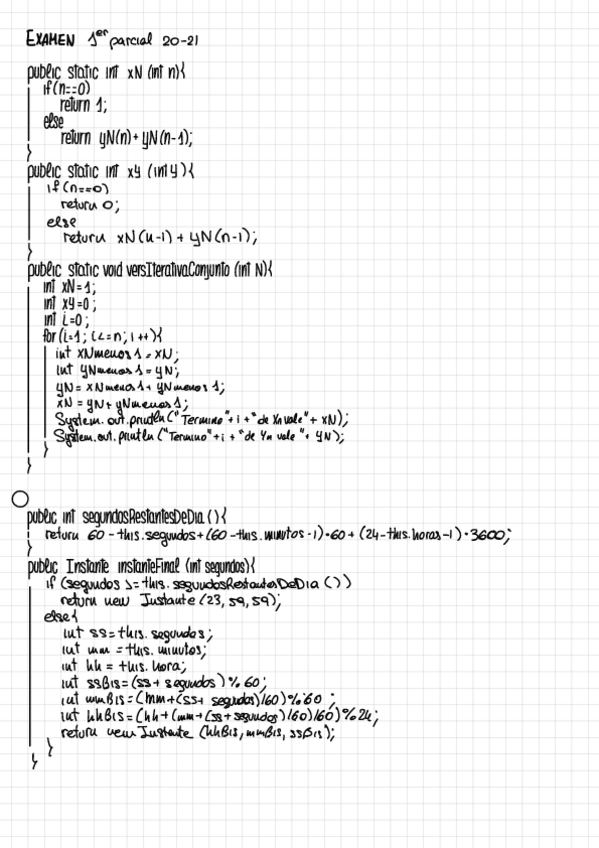 EXAMEN 1er parcial 20-21
public static int xN (int n){
if(n==0)
return 1;
else
return yN(n)+yN(n-1);
}
public static int xy (int y){
if(n==0)
return 0;
else
return xN(n-1)+yN(n-1);
}
public static void versIterativaConjunto (int N){
int xN=1;
int xy=0;
int i=0;
for(i=1; i<=n; i++){
int xNmenos1=xN;
int yNmenos1=yN;
yN=xNmenos1+yNmenos1;
xN=yN+yNmenos1;
System.out.println("Termino"+i+"de Xn vale"+xN);
System.out.println("Termino"+i+"de Yn vale"+yN);
}
}
public int segundosRestantesDeDia(){
return 60-this.segundos+(60-this.minutos-1)·60+(24-this.horas-1)·3600;
}
public Instante instanteFinal (int segundos){
if (segundos >=this.segundosRestantesDeDia())
return new Instante(23,59,59);
else{
int ss=this.segundos;
int mm=this.minutos;
int hh=this.hora;
int ssBis=(ss+segundos)%60;
int mmBis=(mm+(ss+segundos)/60)%60;
int hhBis=(hh+(mm+(ss+segundos)/60)/60)%24;
return new Instante (hhBis,mmBis,ssBis);
}
}